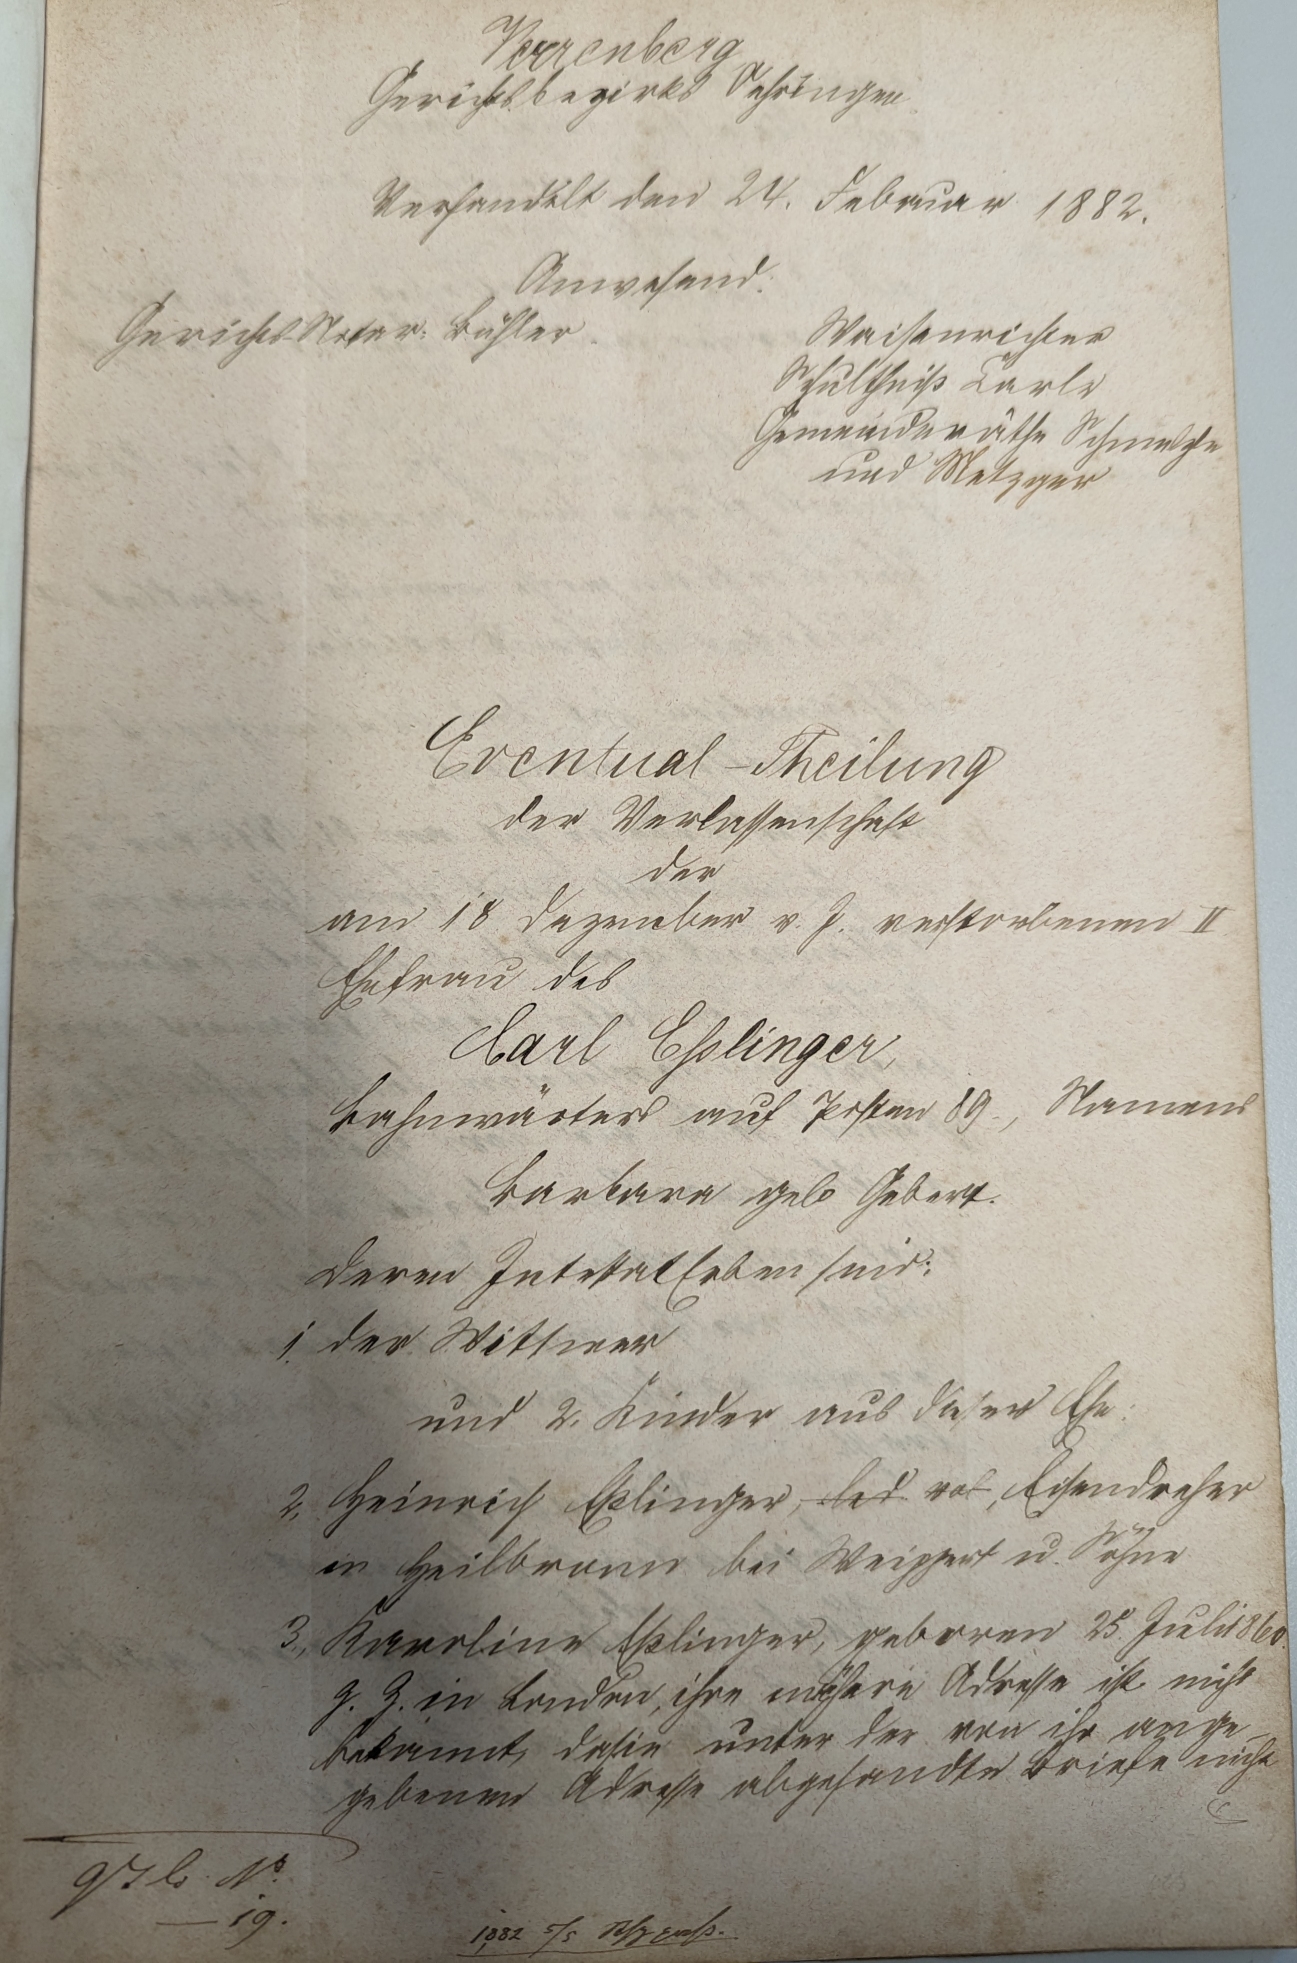 Verrenberg
Gerichtsbezirks Oehringen
Verhandelt den 24. Februar 1882.
Anwesend:
Gerichts Notar: Bühler.
Waisenrichter
Schultheiß Carle
Gemeinderäthe Schmelzle
und Metzger
Eventual-Theilung
der Verlassenschaft
der
am 18 Dezember v. J. verstorbenen II
Ehefrau des
Carl Eßlinger,
Bahnwärters auf Posten 89., Namens
Barbara geb Gebert.
Deren IntestatErben sind:
1. der Wittwer
und 2. Kinder aus dieser Ehe:
2. Heinrich Eßlinger, led. vol, Eisendreher
in Heilbronn bei Weippert u. Söhne
3., Karoline Eßlinger, geboren 25. Juli 1860.
z. Z. in London, ihre nähere Adresse ist nicht
bekannt, da sie unter der von ihr ange-
gebenen Adresse abgesandte Briefe nicht
No.
19.
1882 5/5